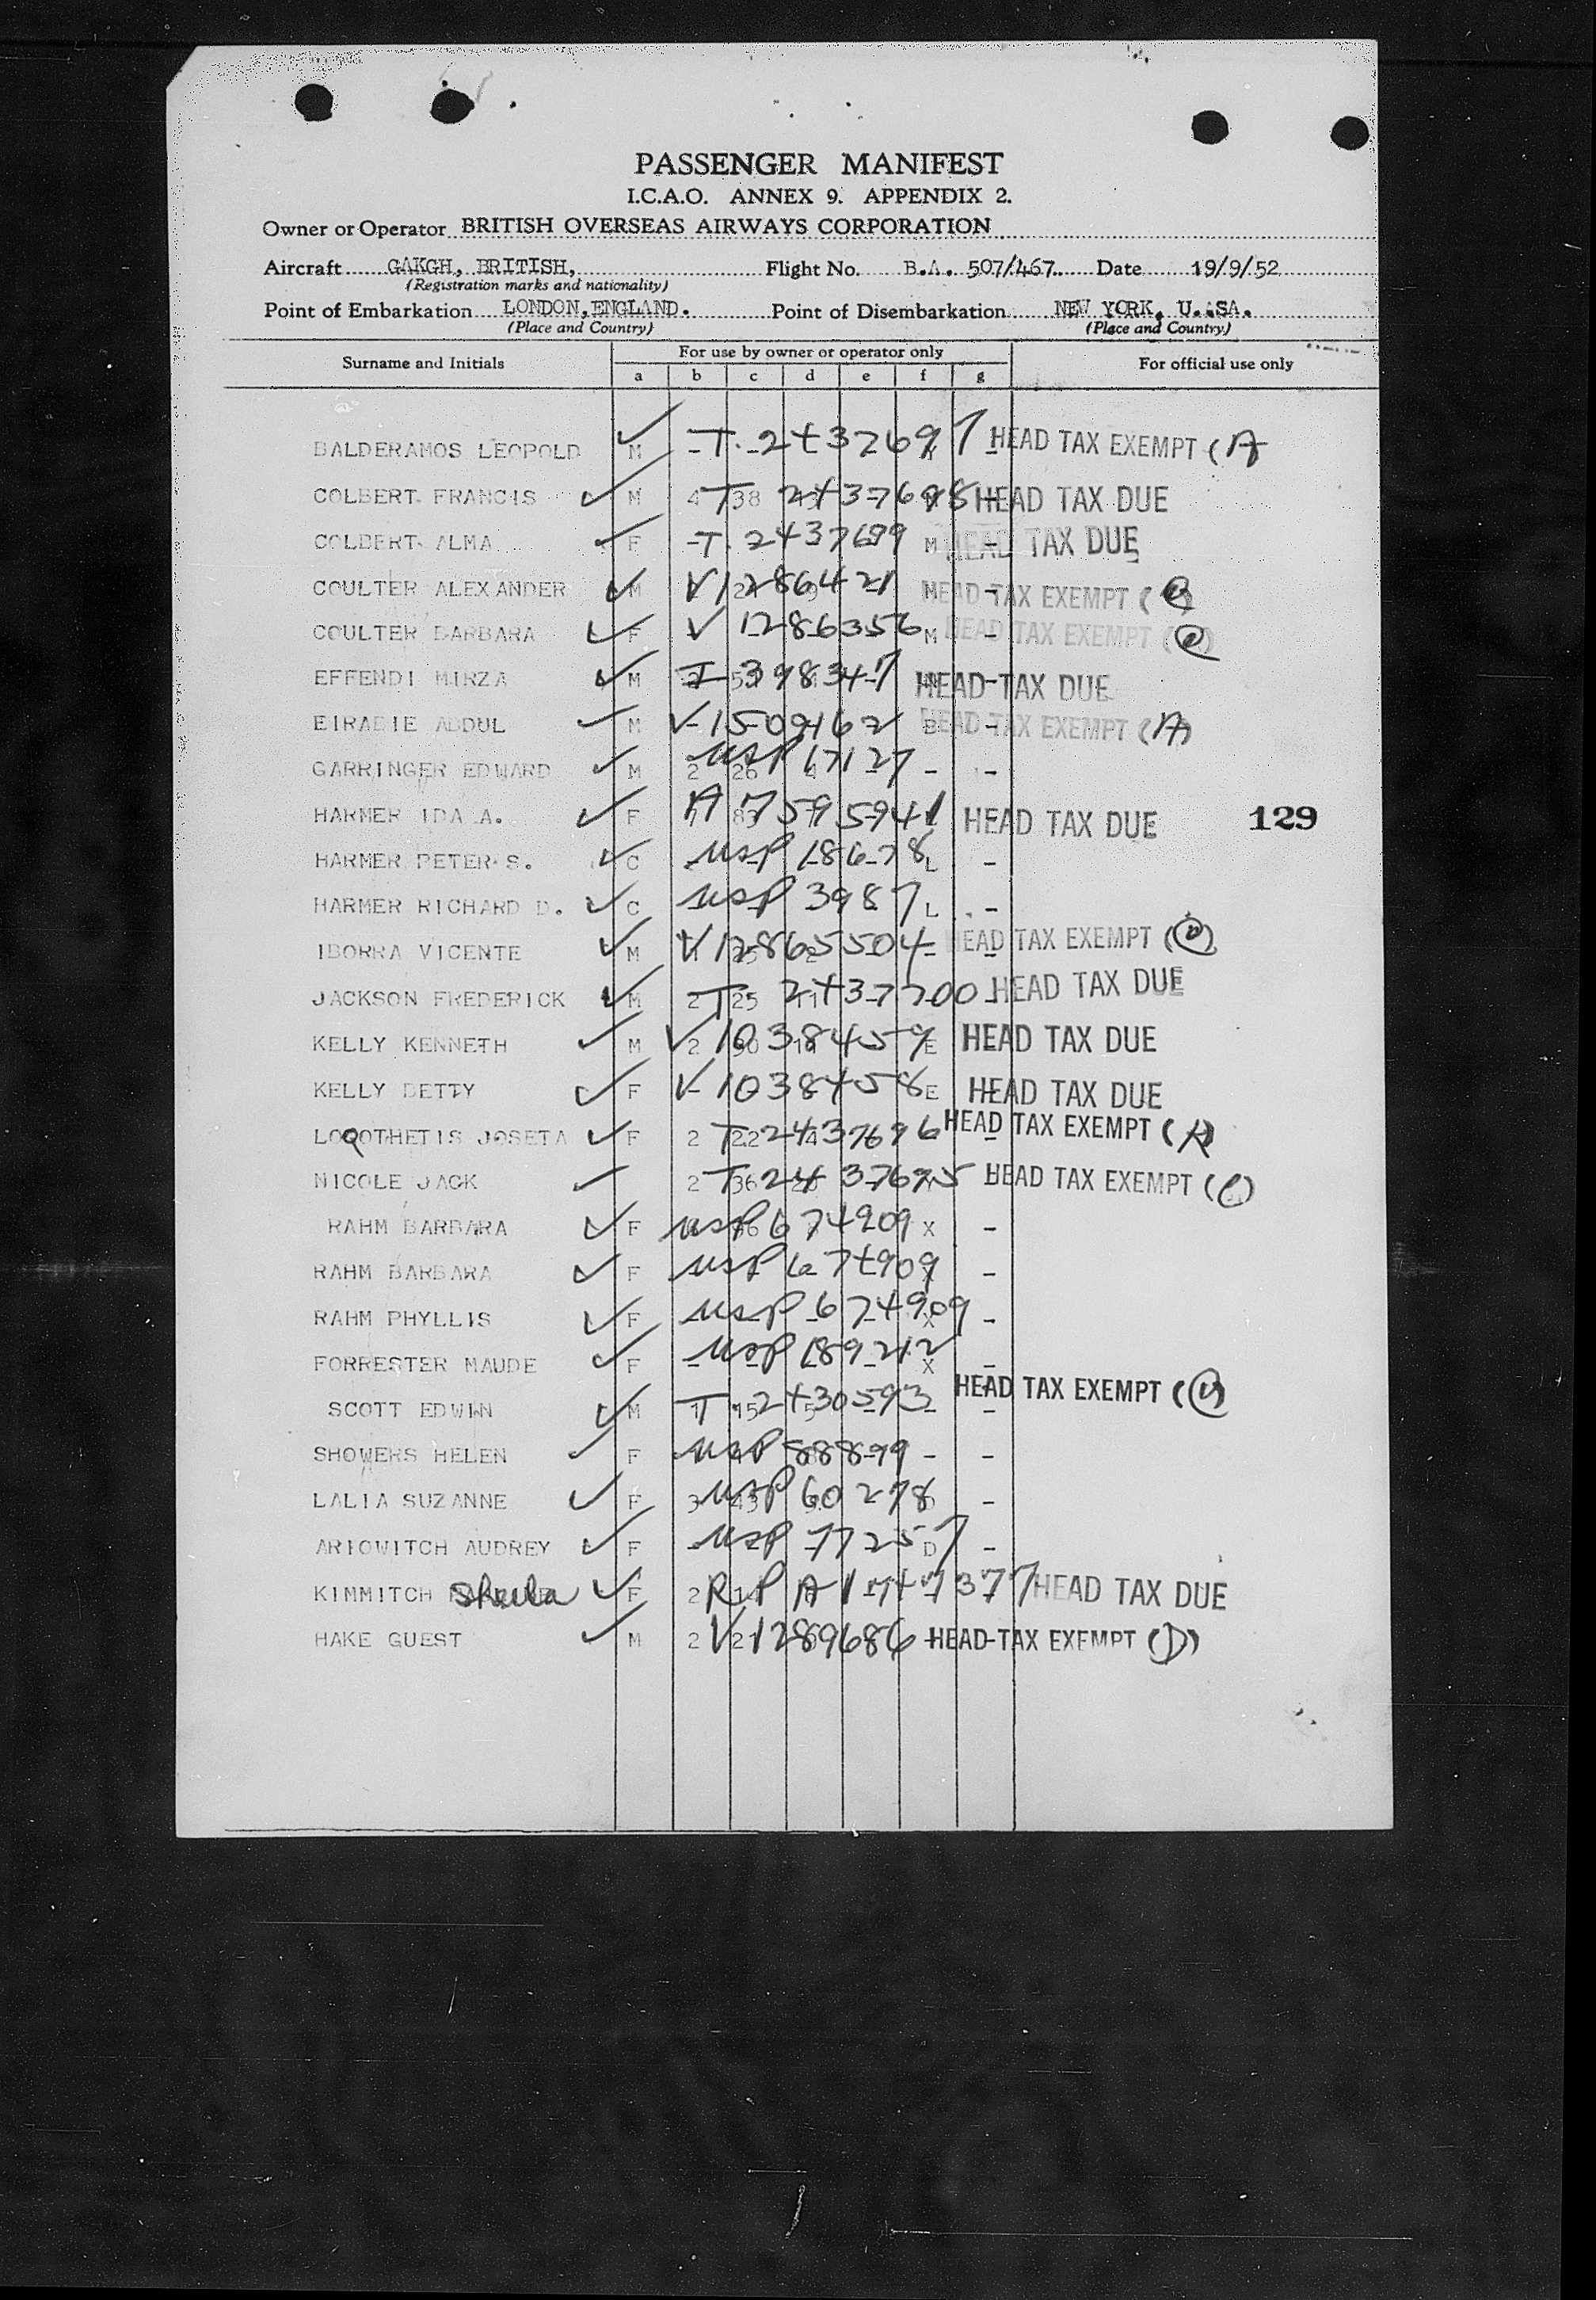 PASSENGER MANIFEST
I.C.A.O. ANNEX 9. APPENDIX 2.
Owner or Operator BRITISH OVERSEAS AIRWAYS CORPORATION
Aircraft GAKGH, BRITISH, Flight No. B.A. 507/467 Date 19/9/52
(Registration marks and nationality)
Point of Embarkation LONDON, ENGLAND. Point of Disembarkation NEW YORK, U.SA.
(Place and Country) (Place and Country)
Surname and Initials For use by owner or operator only For official use only
a b c d e f g
BALDERAMOS LEOPOLD M T. 2437697 HEAD TAX EXEMPT (A)
COLBERT FRANCIS M 4 38 T 2437698 HEAD TAX DUE
COLBERT ALMA F T. 2437699 M HEAD TAX DUE
COULTER ALEXANDER M V 1286421 M HEAD TAX EXEMPT
COULTER BARBARA F V 1286356 M HEAD TAX EXEMPT
EFFENDI MIRZA M 398347 HEAD TAX DUE
EIRADIE ABDUL M V 1509162 HEAD TAX EXEMPT (A)
GARRINGER EDWARD M 2 26 USP 17127 - -
HARMER IDA A. F A 7595941 HEAD TAX DUE 129
HARMER PETER S. C USP 18678 L -
HARMER RICHARD D. C USP 3987 L -
IBORRA VICENTE M V 12865504 HEAD TAX EXEMPT
JACKSON FREDERICK M 2 25 T 2437700 HEAD TAX DUE
KELLY KENNETH M 2 V 1038459 E HEAD TAX DUE
KELLY BETTY F V 1038458 E HEAD TAX DUE
LOQOTHETIS JOSETA F 2 22 T 2437696 HEAD TAX EXEMPT (A)
NICOLE JACK 2 36 T 2437695 HEAD TAX EXEMPT (C)
RAHM BARBARA F USP 674909 X -
RAHM BARBARA F USP 674909 -
RAHM PHYLLIS F USP 674909 X -
FORRESTER MAUDE F USP 189212 X -
SCOTT EDWIN M T 2430593 - - HEAD TAX EXEMPT
SHOWERS HELEN F USP 88899 - -
LALIA SUZANNE F 3 43 USP 60278 -
ARIOWITCH AUDREY F USP 77257 D -
KIMMITCH Sheila F 2 RP A1747377 HEAD TAX DUE
HAKE GUEST M 2 21 V 1289686 HEAD TAX EXEMPT (D)